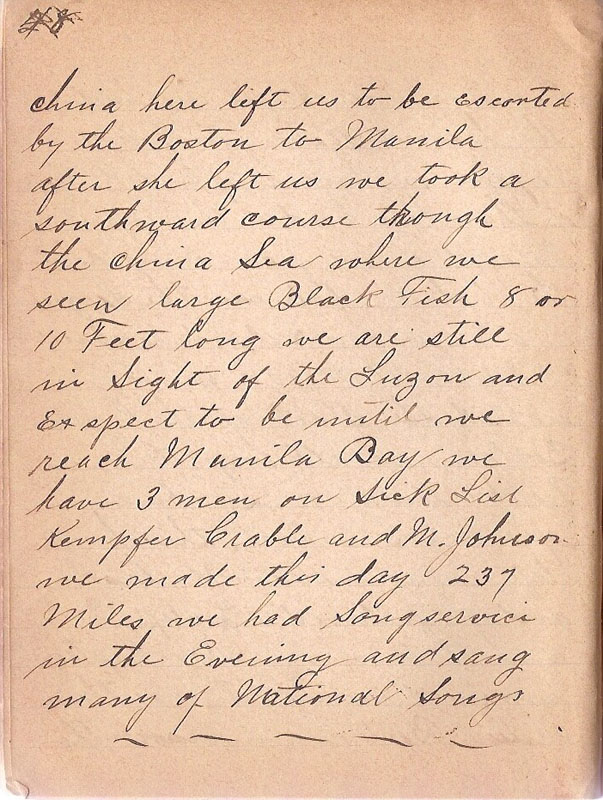 china here left us to be escorted
by the Boston to Manila
after she left us we took a
southward course though
the china Sea where we
seen large Black Fish 8 or
10 Feet long we are still
in Sight of the Luzon and
Expect to be until we
reach Manila Bay we
have 3 men on Sick List
Kempfer Crable and M. Johnson
we made this day 237
Miles we had Songservice
in the Evening and sang
many of National Songs